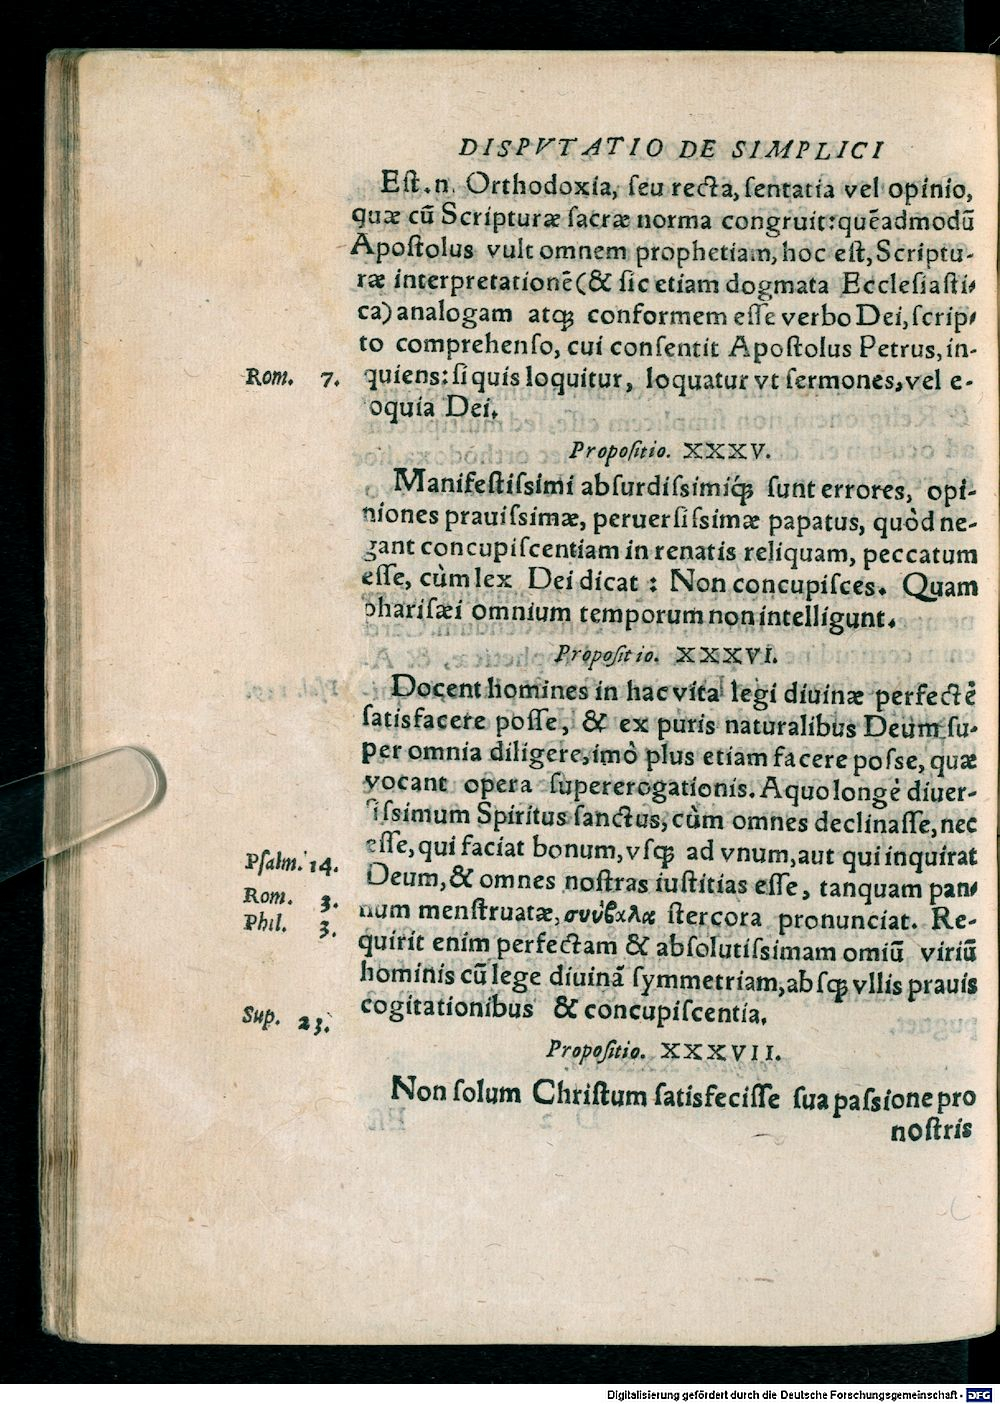 DISPVTATIO DE SIMPLICI
Eſt.n. Orthodoxia, ſeu recta, ſentatia vel opinio,
quæ cũ Scripturæ ſacræ norma congruit: quẽadmodũ
Apoſtolus vult omnem prophetiam, hoc eſt, Scriptu-
ræ interpretationẽ (& ſic etiam dogmata Eccleſiaſti-
ca) analogam atq́; conformem eſſe verbo Dei, ſcrip-
to comprehenſo, cui conſentit Apoſtolus Petrus, in-
Rom. 7. quiens: ſi quis loquitur, loquatur vt ſermones, vel e-
oquia Dei.
Propoſitio. XXXV.
Manifeſtiſsimi abſurdiſsimiq́; ſunt errores, opi-
niones prauiſsimæ, peruerſiſsimæ papatus, quòd ne-
gant concupiſcentiam in renatis reliquam, peccatum
eſſe, cùm lex Dei dicat: Non concupiſces. Quam
phariſæi omnium temporum non intelligunt.
Propoſitio. XXXVI.
Docent homines in hac vita legi diuinæ perfectè
ſatisfacere poſſe, & ex puris naturalibus Deum ſu-
per omnia diligere, imò plus etiam facere poſse, quæ
vocant opera ſupererogationis. A quo longè diuer-
ſiſsimum Spiritus ſanctus, cùm omnes declinaſſe, nec
eſſe, qui faciat bonum, vſq; ad vnum, aut qui inquirat
Pſalm. 14. Deum, & omnes noſtras iuſtitias eſſe, tanquam pan-
Rom. 3. num menſtruatæ, σκύβαλα ſtercora pronunciat. Re-
Phil. 3. quirit enim perfectam & abſolutiſsimam omiũ viriũ
hominis cũ lege diuinã ſymmetriam, abſq; vllis prauis
Sup. 23. cogitationibus & concupiſcentia.
Propoſitio. XXXVII.
Non ſolum Chriſtum ſatisfeciſſe ſua paſsione pro
noſtris
Digitalisierung gefördert durch die Deutsche Forschungsgemeinschaft - DFG